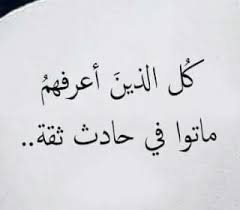 كُل الذينَ أعرفهمُ
ماتوا في حادث ثقة..